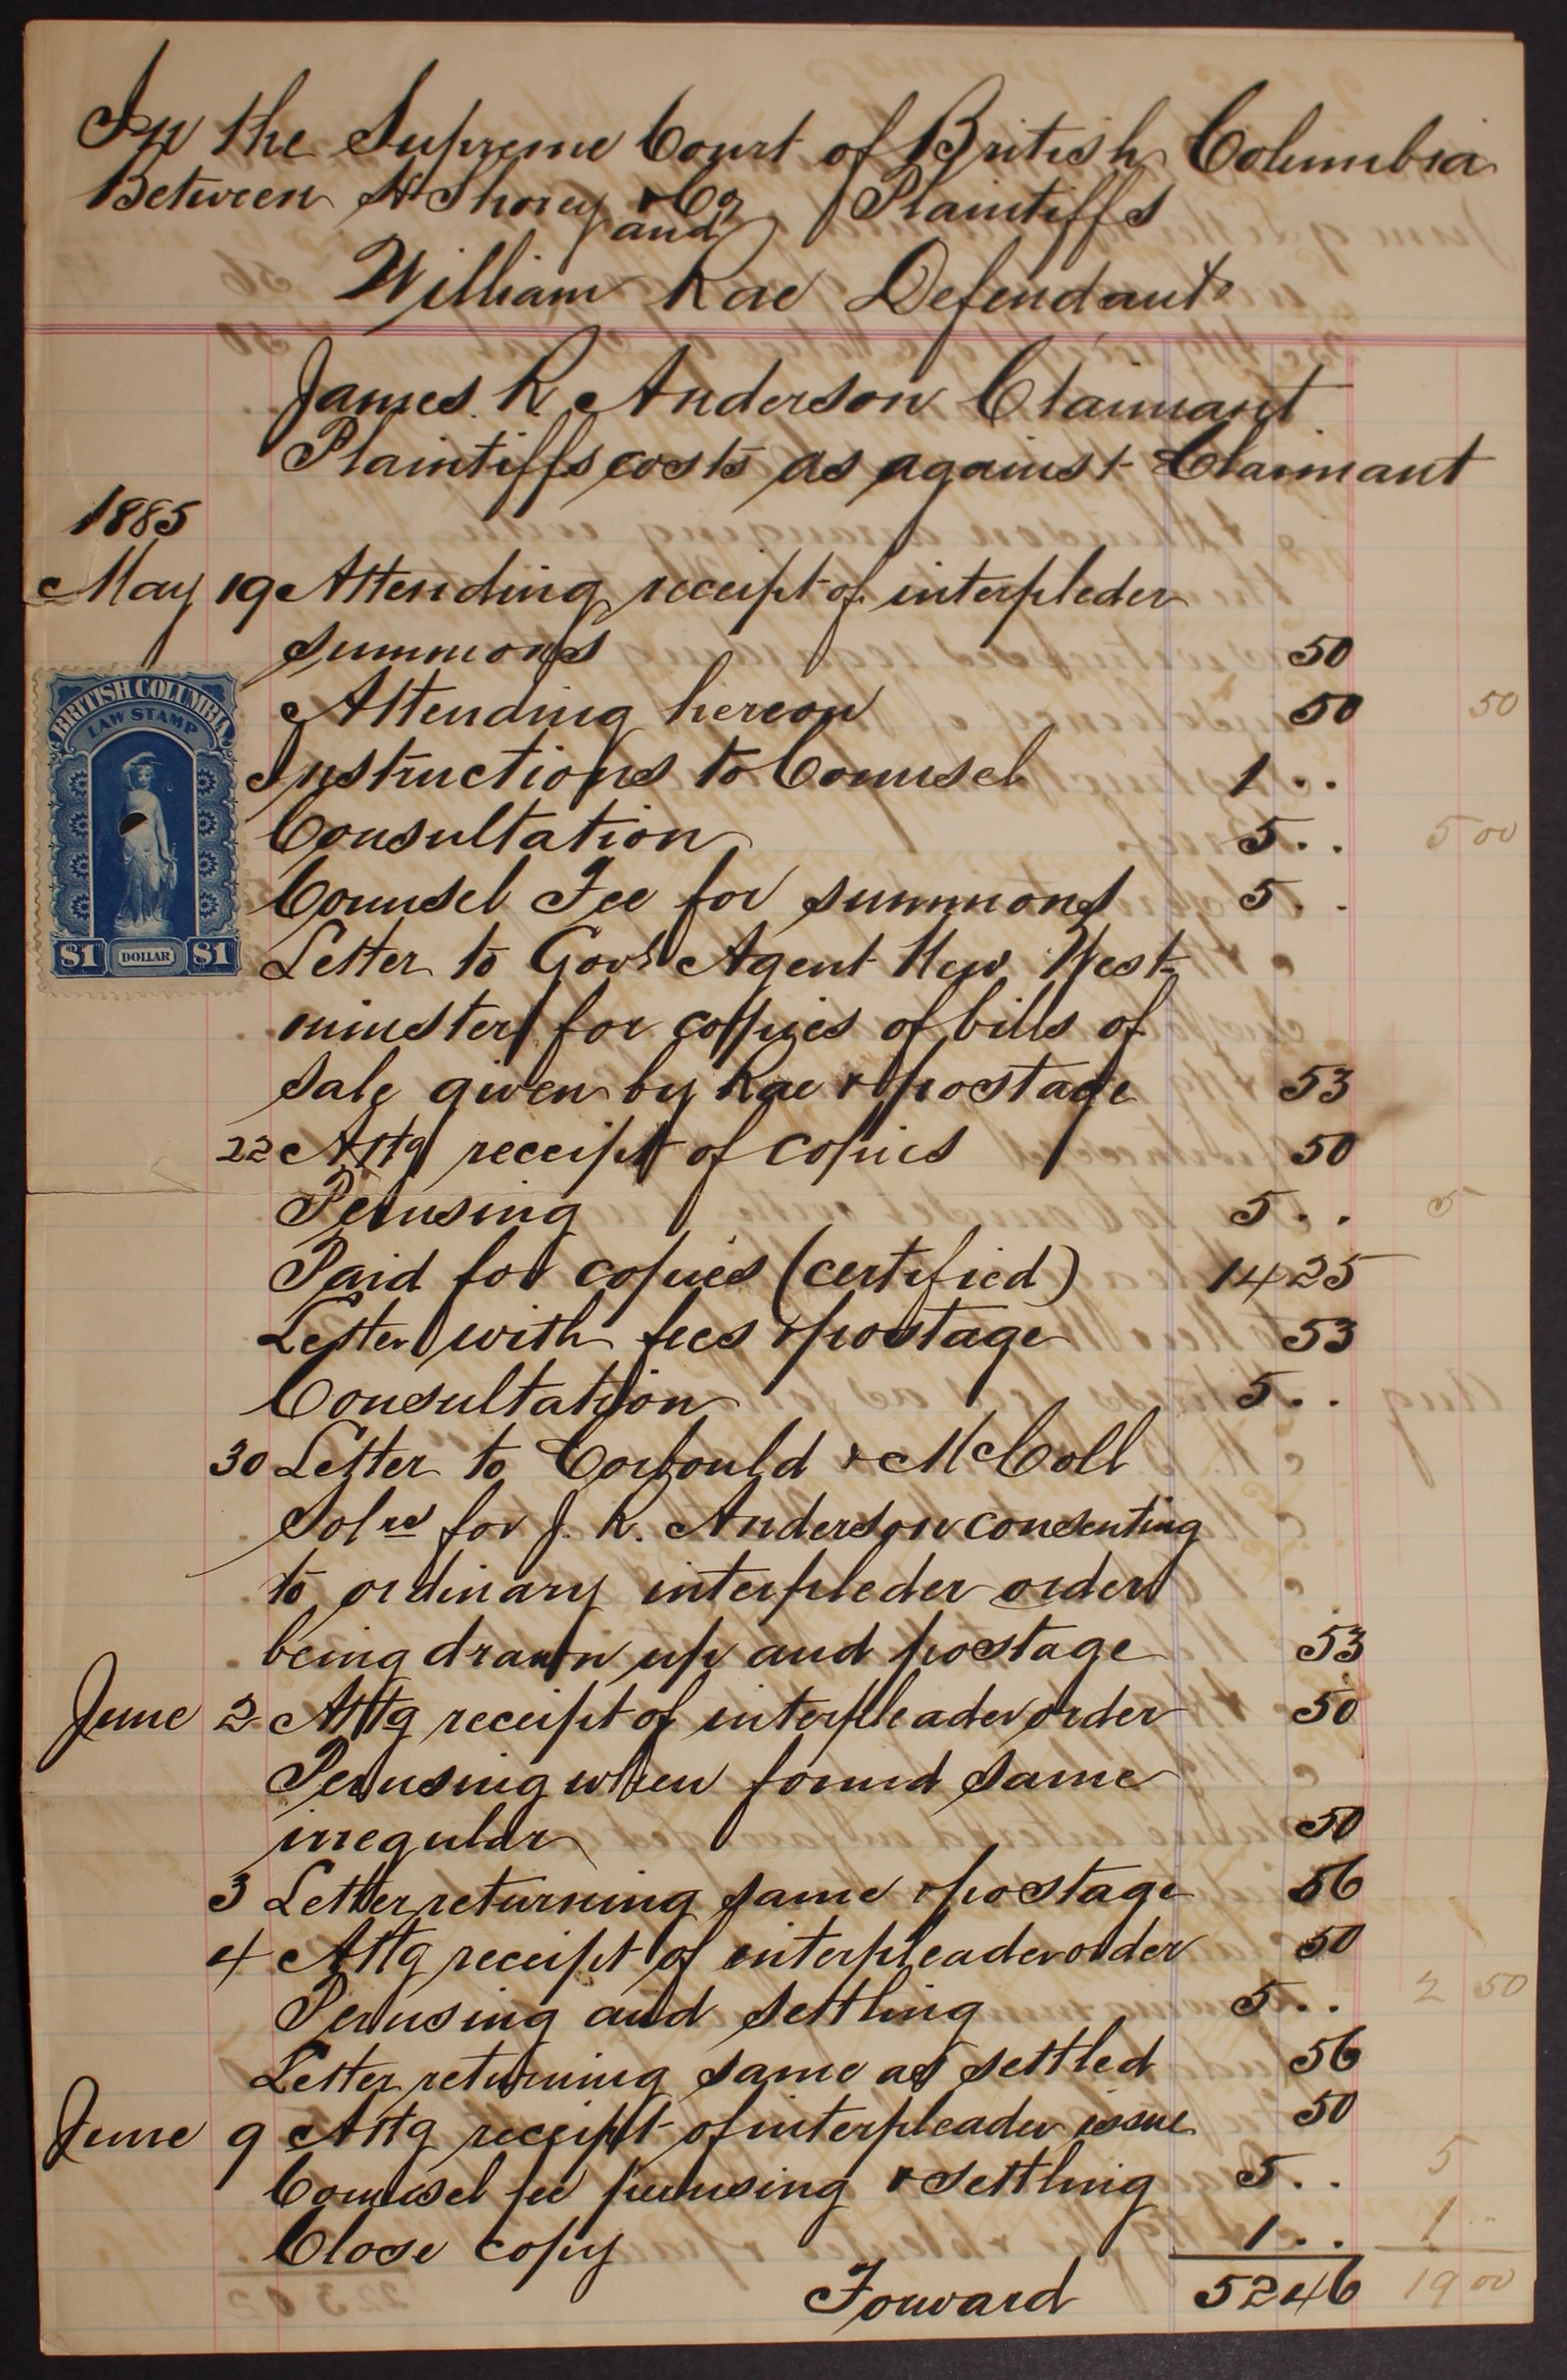 In the Supreme Court of British Columbia
Between H Shorey & Co Plaintiffs
and
William Rae Defendant
James R. Anderson Claimant
Plaintiffs costs as against Claimant
1885
May 19 Attending receipt of interpleder
summons 50
Attending hereon 50 50
Instructions to Counsel 1 . .
Consultation 5 . . 5 00
Counsel Fee for summons 5 . .
Letter to Govt Agent New West-
minster for copies of bills of
sale given by Rae & postage 53
22 Attg receipt of copies 50
Perusing 5 . . 5
Paid for copies (certified) 14 25
Letter with fees & postage 53
Consultation 5 . .
30 Letter to Corbould & McColl
Solrs for J. R. Anderson consenting
to ordinary interpleder order
being drawn up and postage 53
June 2 Attg receipt of interpleader order 50
Perusing when found same
irregular 50
3 Letter returning same & postage 56
4 Attg receipt of interpleader order 50
Perusing and settling 5 . . 2 50
Letter returning same as settled 56
June 9 Attg receipt of interpleader issue 50
Counsel fee perusing & settling 5 . . 5
Close copy 1 . . 1 . .
Forward 52 46 19 00
BRITISH COLUMBIA
LAW STAMP
$1 DOLLAR $1